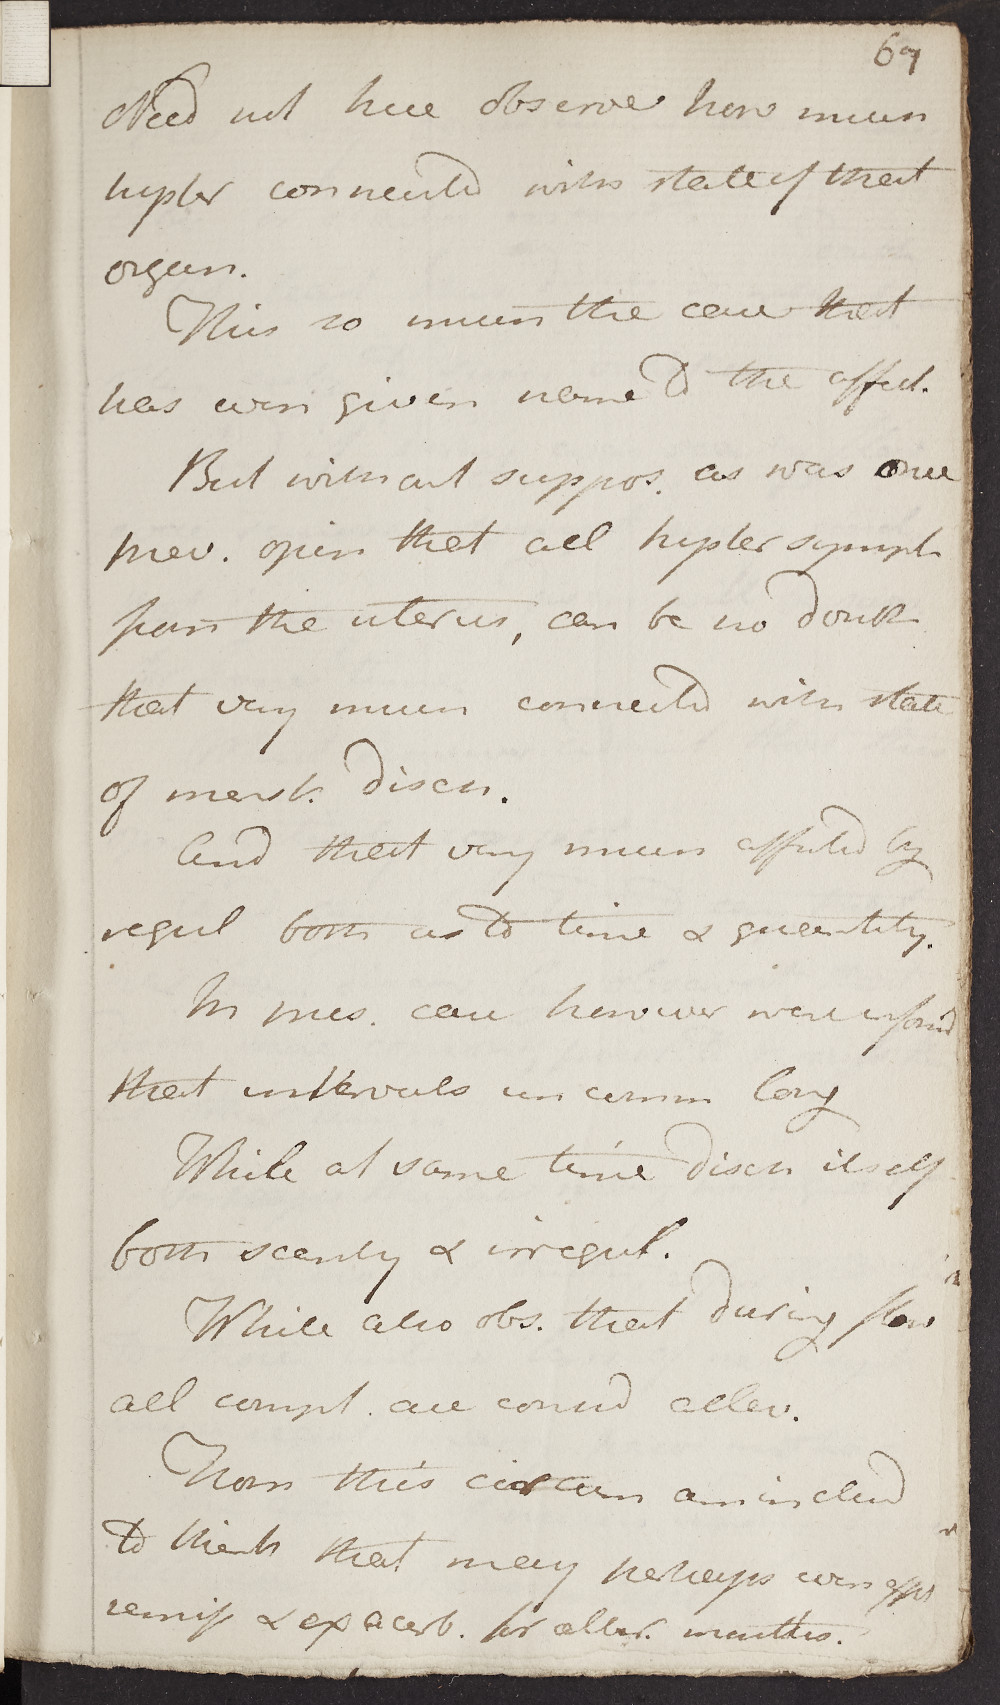 67
Need not here observe how much
hyster connected with state of that
organ.
This so much the case that
has even given name to the affect.
But without suppos. as was once
prev. opin that all hyster sympt
from the uterus, can be no doubt
that very much connected with state
of menst. disch.
And that very much affected by
regul both as to time & quantity.
In pres. case however were inform'd
that intervals uncomm long
While at same time disch itself
both scanty & irregul.
While also obs. that during flow
all compl. are consid allev.
From this circum am inclin'd
to think that may perhaps even affect
remiss & exacerb. for alter. months.